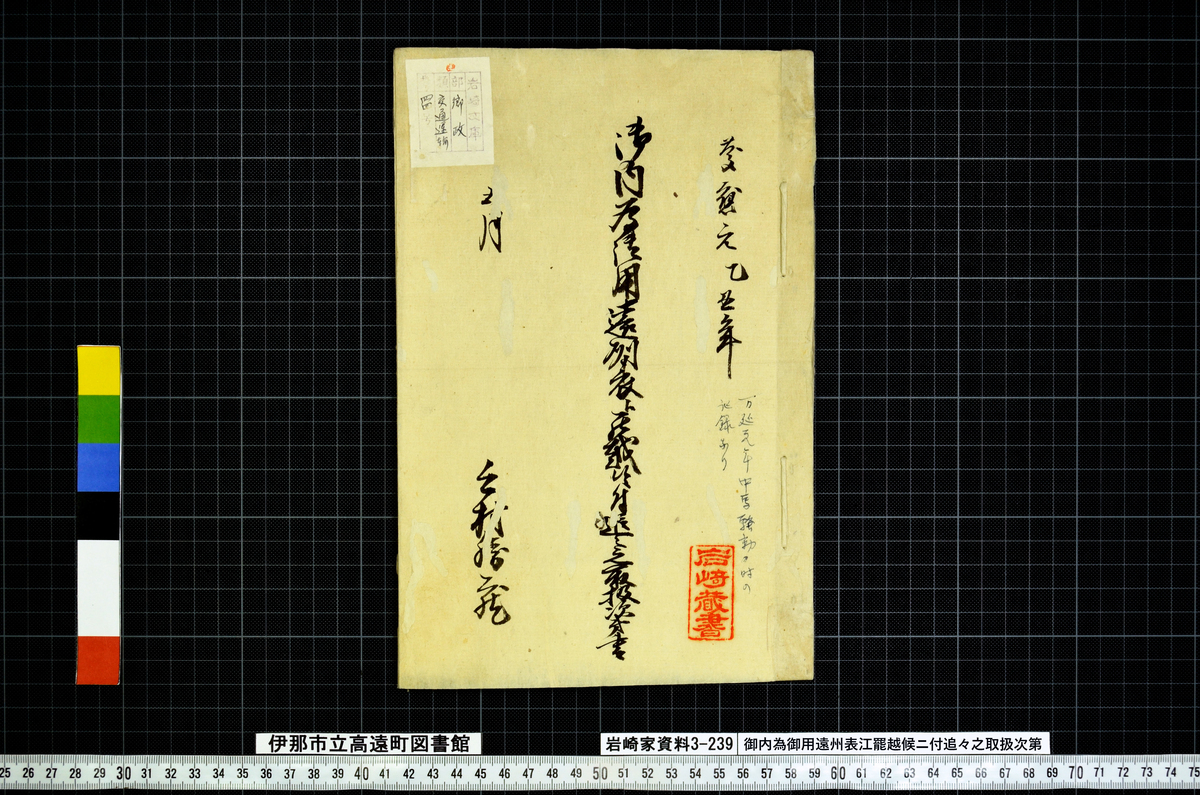 慶應元乙丑年
御内為御用遠州表江罷越候ニ付追々之取扱次第書
五月
万延元年中馬騒動の時の
記録あり
岩﨑蔵書
岩崎文庫
部 郷政
類 交通運輸
四
伊那市立高遠町図書館
岩崎家資料3-239
御内為御用遠州表江罷越候ニ付追々之取扱次第
25 26 27 28 29 30 31 32 33 34 35 36 37 38 39 40 41 42 43 44 45 46 47 48 49 50 51 52 53 54 55 56 57 58 59 60 61 62 63 64 65 66 67 68 69 70 71 72 73 74 75